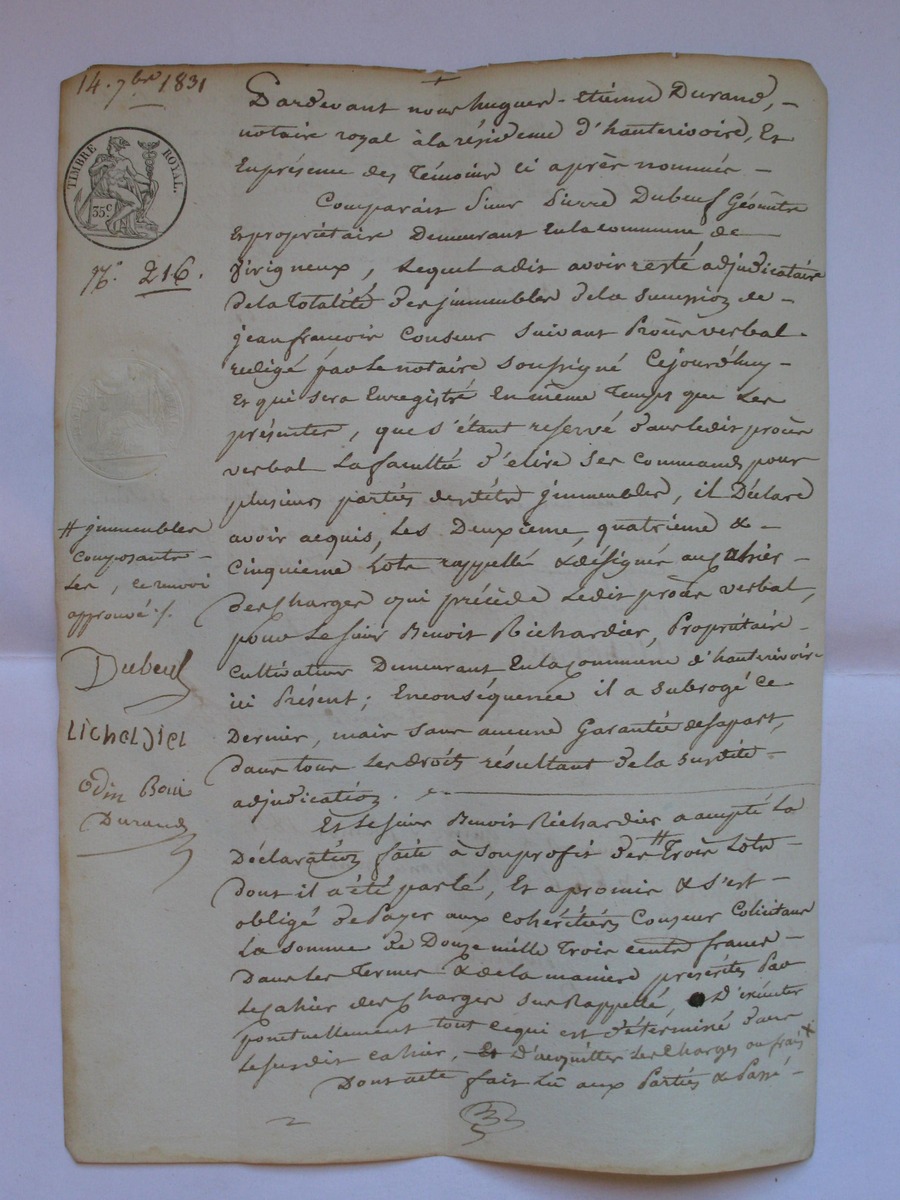 14. 7bre 1831
TIMBRE ROYAL.
35c
N.° 216.
Pardevant nous hugues-étienne Durand,
notaire royal à la résidence d'hauterivoire, Et
En présence des Témoins ci après nommés
Comparait sieur Pierre Dubeuf Géomètre
Et propriétaire Demeurant En la commune de
Virigneux, Lequel a dit avoir resté adjudicataire
de la Totalité des jmmeubles de la succession de
jean françois Couseur suivant Procès verbal
redigé par Le notaire soussigné Cejourd'huy
Et qui sera Enregistré En même Temps que Les
présentes, que s'étant reservé dans ledit procès
verbal La faculté d'élire des commands pour
plusieurs parties desdits jmmeubles, il Déclare
avoir acquis, Les Deuxieme, quatrieme &
Cinquieme Lots rappellé & désignés au Cahier
des Charges qui précède Ledit procès verbal,
pour Le sieur Benoit Richardier, Propriétaire
Cultivateur Demeurant En la Commune d'hauterivoire
ici Présent; En conséquence il a subrogé ce
Dernier, mais sans aucune Garantie de sa part,
dans tous Les droits résultant de la susdite
adjudication.
Et Le sieur Benoit Richardier a accepté La
Déclaration faite à son profit des # Trois Lots
dont il a été parlé, Et a promis & s'est
obligé de Payer aux cohéritiers Couseur Colicitans
La somme de Douze mille Trois cents francs
Dans Les Termes & de la maniere préscrites Par
Le Cahier des Charges sus Rappellé, D'exécuter
ponctuellement tout ce qui est déterminé dans
Le susdit cahier, Et D'acquitter Les Charges ou frais x
Dont acte fait Lû aux Parties & Passé
# jmmeubles
composants
Les, ce renvoi
approuvé ./.
Dubeuf
Richardier
Odin
Durand